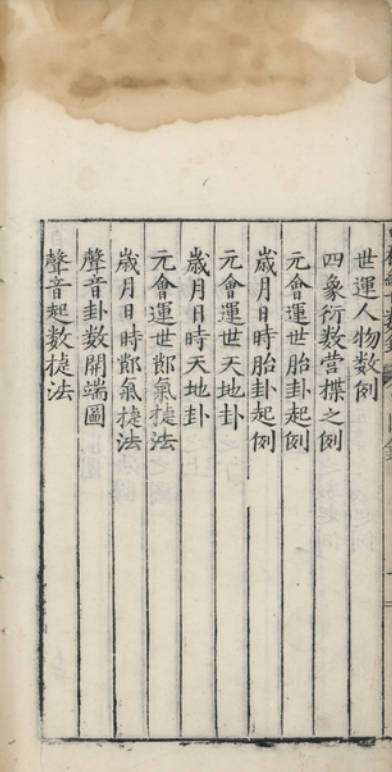 世運人物數例
四象衍數營揲之例
元會運世胎卦起例
歲月日時胎卦起例
元會運世天地卦
歲月日時天地卦
元會運世節氣捷法
歲月日時節氣捷法
聲音卦數開端圖
聲音起數捷法